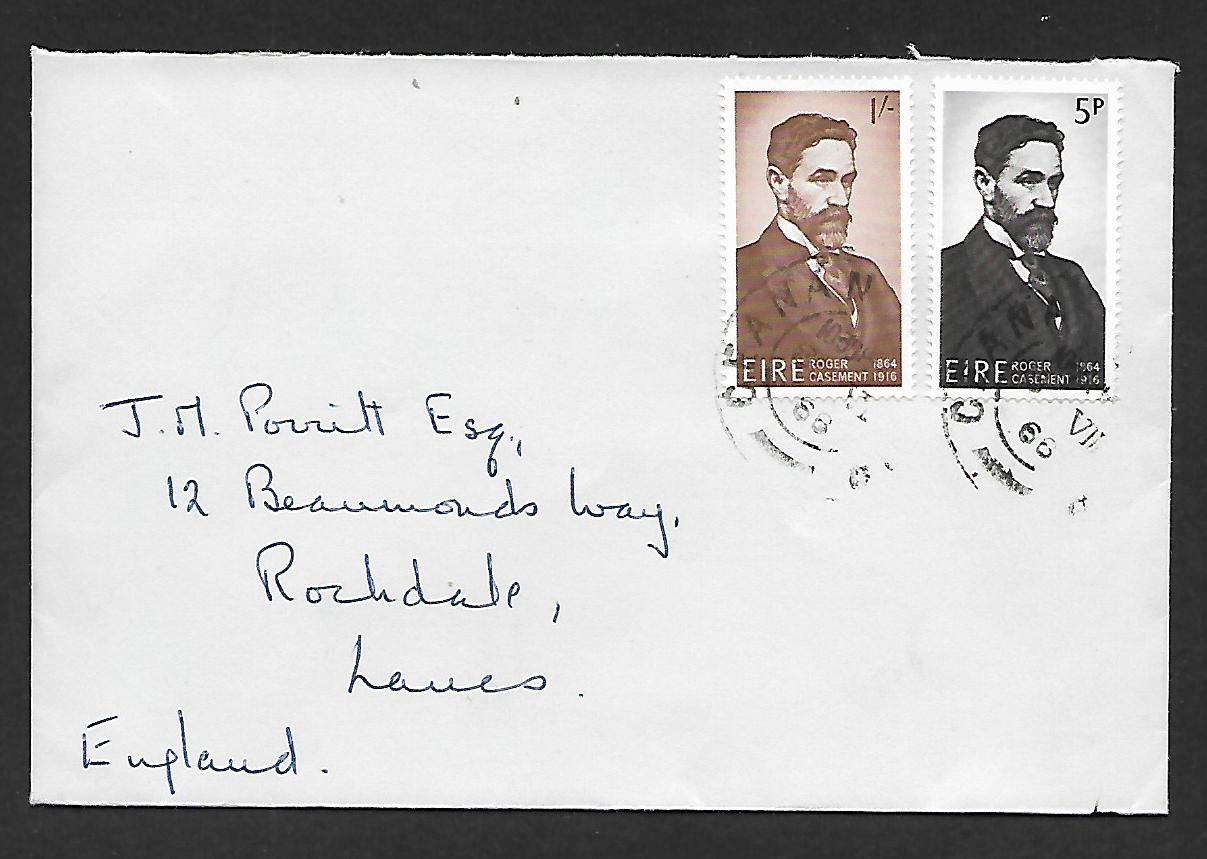 1/-
EIRE ROGER CASEMENT 1864 1916
5P
EIRE ROGER CASEMENT 1864 1916
VII
68
68
J.M. Porritt Esq.,
12 Beaumonds Way,
Rochdale,
Lancs.
England.